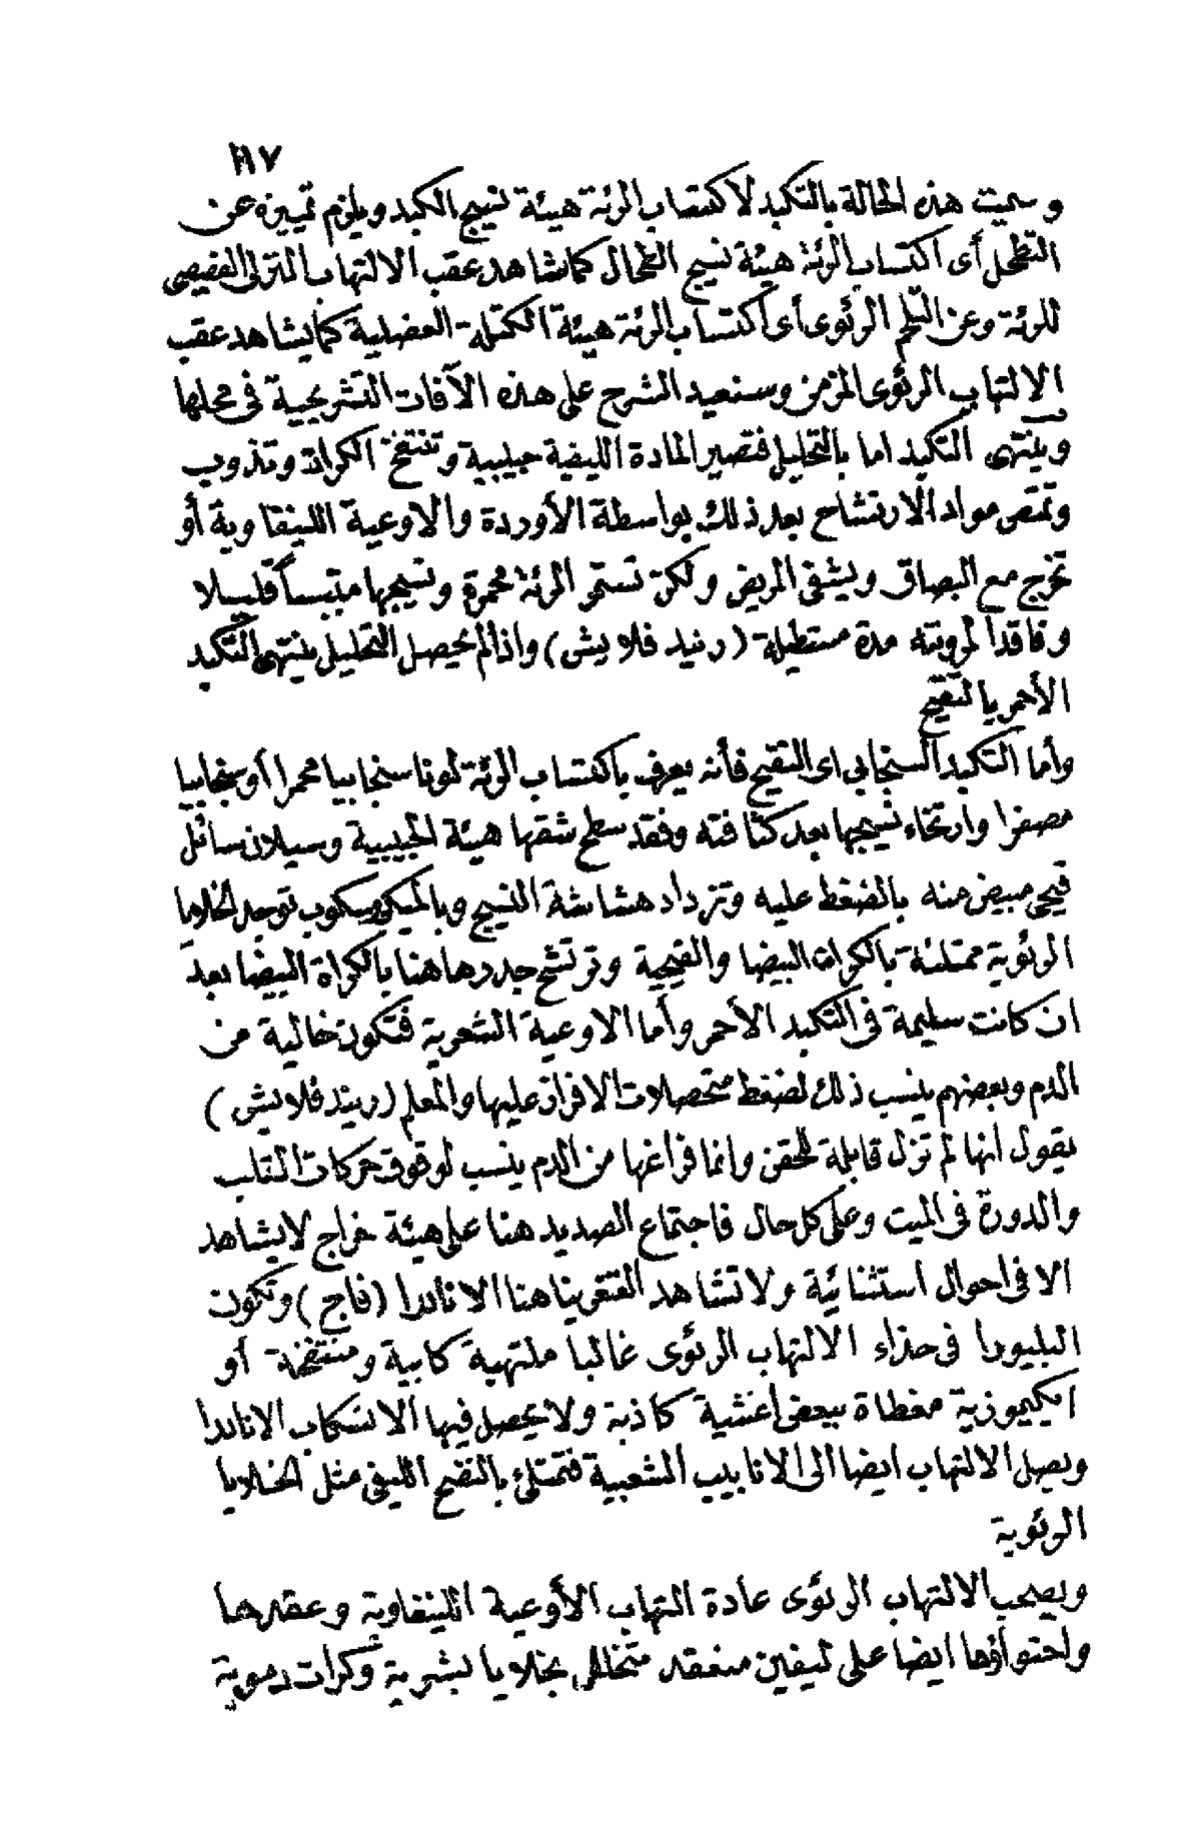 ١١٧
وسميت هذه الحالة بالتكبد لاكتساب الرئة هيئة نسيج الكبد ويلزم تمييزه عن
التطحل أى اكتساب الرئة هيئة نسيج الطحال كما شاهد عقب الالتهاب النزلى الفصيصى
للرئة وعن التلحم الرئوى أى اكتساب الرئة هيئة الكتلة العضلية كما يشاهد عقب
الالتهاب الرئوى المزمن وسنعيد الشرح على هذه الآفات التشريحية فى محلها
وينتهى التكبد اما بالتحليل فتصير المادة الليفية حبيبية وتنتفخ الكرات وتذوب
وتمتص مواد الارتشاح بعد ذلك بواسطة الأوردة والاوعية اللينفاوية أو
تخرج مع البصاق ويشفى المريض ولكن تستمر الرئة محمرة ونسيجها متيبسا قليلا
وفاقدا لمرونته مدة مستطيلة (رنيد فلايش) واذا لم يحصل التحليل ينتهى التكبد
الأحمر بالتقيح
وأما التكبد السنجابى اى التقيح فأنه يعرف باكتساب الرئة لونا سنجابيا محمرا أو سنجابيا
مصفرا وارتخاء نسيجها بعد كثافته وفقد سطح شقها هيئة الحبيبية وسيلان سائل
قيحى مبيض منه بالضغط عليه وتزداد هشاشة النسيج وبالميكروسكوب توجد الخلايا
الرئوية ممتلئة بالكرات البيضا والقيحية وترتشح جدرها هنا بالكراة البيضا بعد
ان كانت سليمة فى التكبد الأحمر وأما الاوعية الشعرية فتكون خالية من
الدم وبعضهم ينسب ذلك لضغط متحصلات الافراز عليها والمعلم (ريند فلايش)
يقول انها لم تزل قابلة للحقن وانما فراغها من الدم ينسب لوقوف حركات القلب
والدورة فى الميت وعلى كل حال فاجتماع الصديد هنا على هيئة خراج لا يشاهد
الا فى احوال استثنائية ولا تشاهد الغنغرينا هنا الا نادرا (فاج) وتكون
البليورا فى حذاء الالتهاب الرئوى غالبا ملتهبة كابية ومنتفخة أو
ايكيموزية مغطاة ببعض اغشية كاذبة ولا يحصل فيها الانسكاب الا نادرا
ويصل الالتهاب ايضا الى الانابيب الشعبية فتمتلئ بالنضح الليفى مثل الخلايا
الرئوية
ويصحب الالتهاب الرئوى عادة التهاب الأوعية اللينفاوية وعقدها
واحتواؤها ايضا على ليفين منعقد متخلل بخلايا بشرية وكرات دموية